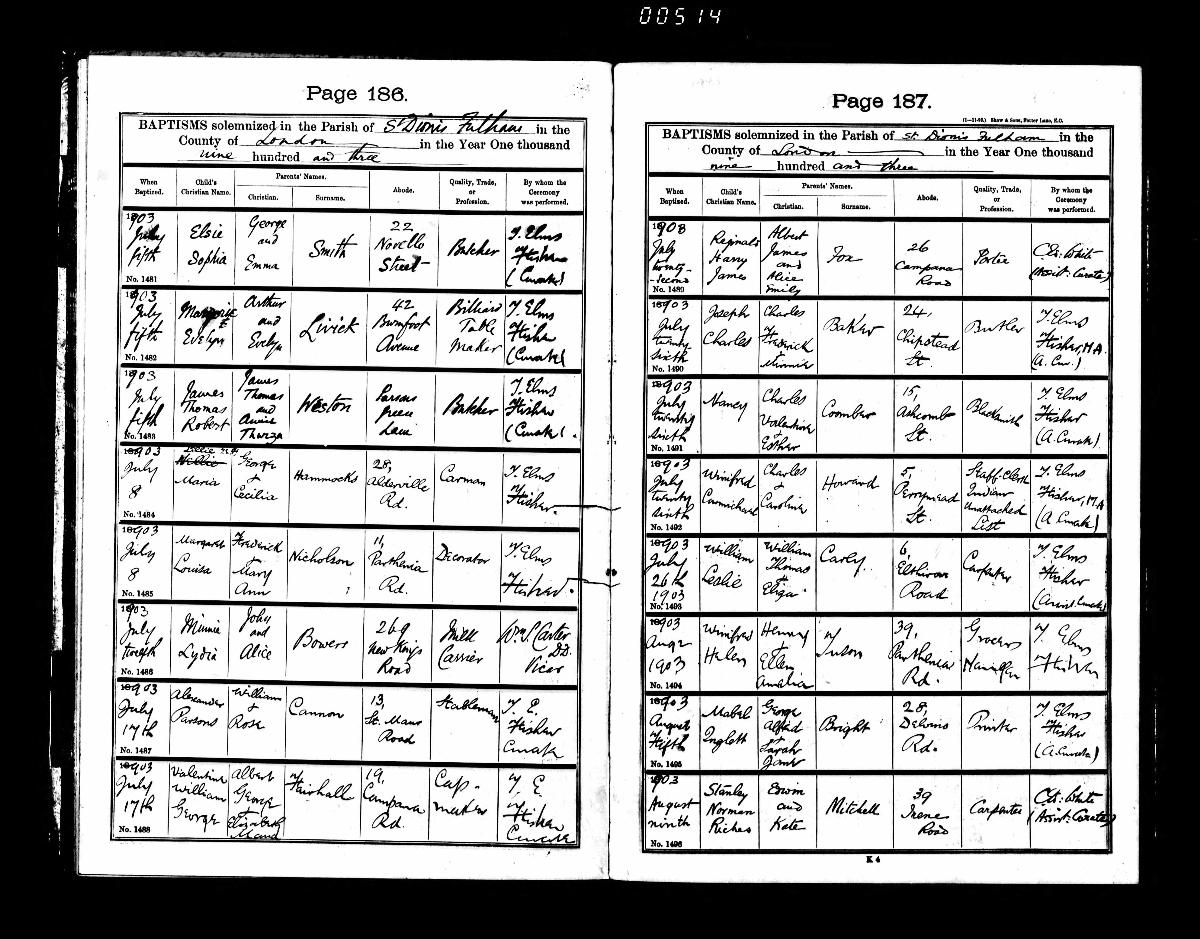 00514
Page 186.
BAPTISMS solemnized in the Parish of St Dionis Fulham in the
County of London in the Year One thousand
nine hundred and three
When Baptized.
Child's Christian Name.
Parents' Names.
Christian.
Surname.
Abode.
Quality, Trade, or Profession.
By whom the Ceremony was performed.
1903
July
fifth
No. 1481
Elsie
Sophia
George
and
Emma
Smith
22
Novello
Street
Butcher
T. Elms
Fisher
(Curate)
1903
July
fifth
No. 1482
Marjorie
Evelyn
Arthur
and
Evelyn
Livick
42
Burnfoot
Avenue
Billiard
Table
Maker
T. Elms
Fisher
(Curate)
1903
July
fifth
No. 1483
James
Thomas
Robert
James
Thomas
and
Annie
Thirza
Weston
Parsons
green
Lane
Butcher
T. Elms
Fisher
(Curate).
1903
July
8
No. 1484
Maria
George
+
Cecilia
Hammocks
28,
Alderville
Rd.
Carman
T. Elms
Fisher.
1903
July
8
No. 1485
Margaret
Louisa
Frederick
+
Mary
Ann
Nicholson
11,
Parthenia
Rd.
Decorator
T. Elms
Fisher.
1903
July
twelfth
No. 1486
Minnie
Lydia
John
and
Alice
Bowers
269
New Kings
Road
Milk
Carrier
Wm. S. Carter
DD.
Vicar
1903
July
17th
No. 1487
Alexander
Parsons
William
+
Rose
Cannon
13,
St. Maur
Road
Stableman
T. E.
Fisher
Curate
1903
July
17th
No. 1488
Valentine
William
George
Albert
George
+
Elizabeth
Maud
Fairhall
19,
Campana
Rd.
Cap-
maker
T. E.
Fisher
Curate
Page 187.
(1—11-98.) Shaw & Sons, Fetter Lane, E.C.
BAPTISMS solemnized in the Parish of St. Dionis Fulham in the
County of London in the Year One thousand
nine hundred and three
When Baptized.
Child's Christian Name.
Parents' Names.
Christian.
Surname.
Abode.
Quality, Trade, or Profession.
By whom the Ceremony was performed.
1903
July
twenty-
-second
No. 1489
Reginald
Harry
James
Albert
James
and
Alice
Emily
Fox
26
Campana
Road
Porter
White
(Assist: Curate)
1903
July
twenty
sixth
No. 1490
Joseph
Charles
Charles
Frederick
+
Minnie
Baker
24,
Chipstead
St.
Butler
T. Elms
Fisher, M.A.
(A. Cur.)
1903
July
twenty
sixth
No. 1491
Nancy
Charles
Valentine
+
Esther
Coomber
15,
Ashcombe
St.
Blacksmith
T. Elms
Fisher
(A. Curate)
1903
July
twenty
sixth
No. 1492
Winifred
Carmichael
Charles
+
Caroline
Howard
5,
Perrymead
St.
Staff-Clerk
Indian
Unattached
List
T. Elms
Fisher, M.A
(A. Curate)
1903
July
26th
1903
No. 1493
William
Leslie
William
Thomas
+
Eliza
Carey
6,
Elthiron
Road
Carpenter
T. Elms
Fisher
(Assist. Curate)
1903
Aug 2
1903
No. 1494
Winifred
Helen
Henry
+
Ellen
Amelia
39,
Parthenia
Rd.
Grocers
T. Elms
Fisher
1903
August
Fifth
No. 1495
Mabel
Inglott
George
Alfred
+
Sarah
Jane
Bright
28,
Delvino
Rd.
Printer
T. Elms
Fisher
(A. Curate)
1903
August
ninth
No. 1496
Stanley
Norman
Riches
Edwin
and
Kate
Mitchell
39
Irene
Road
Carpenter
White
(Assist: Curate)
K 4